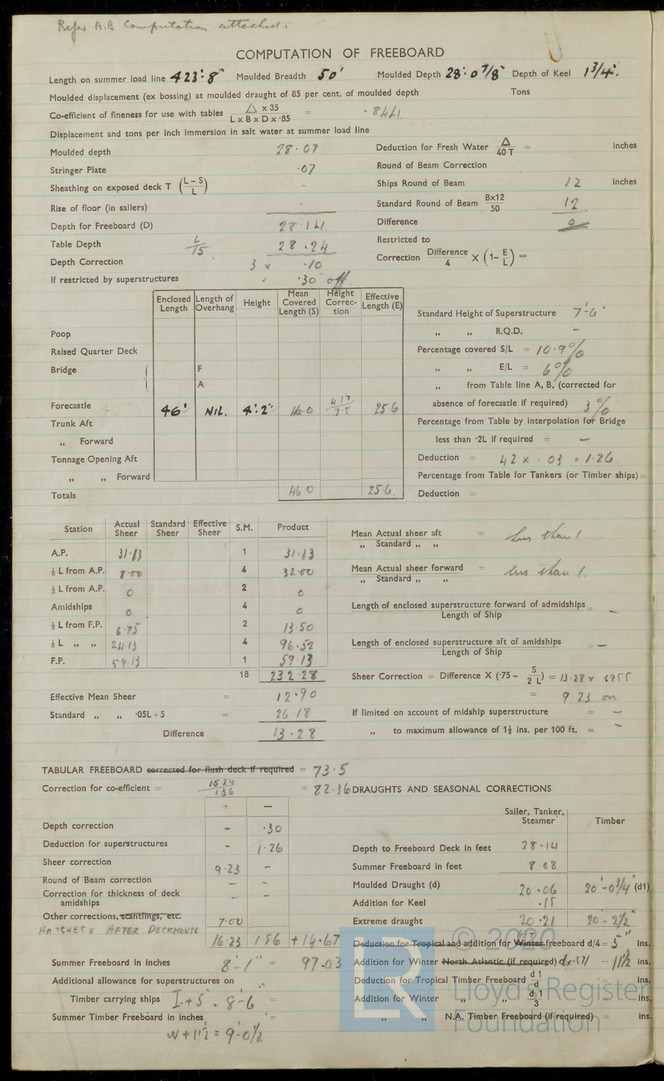 Refer A.B Computation attached.
COMPUTATION OF FREEBOARD
Length on summer load line 423'·8" Moulded Breadth 50' Moulded Depth 28'·0 7/8" Depth of Keel 1 3/4".
Moulded displacement (ex bossing) at moulded draught of 85 per cent. of moulded depth Tons
Co-efficient of fineness for use with tables △ x 35 / L x B x D x ·85 = ·8441
Displacement and tons per inch immersion in salt water at summer load line
Moulded depth 28·07
Stringer Plate ·07
Sheathing on exposed deck T (L–S / L) -
Rise of floor (in sailers) -
Depth for Freeboard (D) 28·141
Table Depth L/15 28·24
Depth Correction 3 x ·10
If restricted by superstructures = ·30 off.
Deduction for Fresh Water △ / 40 T = inches
Round of Beam Correction
Ships Round of Beam 12 inches
Standard Round of Beam Bx12 / 50 12
Difference 0
Restricted to
Correction Difference / 4 X (1– E/L) =
Enclosed Length Length of Overhang Height Mean Covered Length (S) Height Correc- tion Effective Length (E)
Poop
Raised Quarter Deck
Bridge { F
{ A
Forecastle 46' NIL. 4'·2" 46.0 4.17/7.5 25.6
Trunk Aft
„ Forward
Tonnage Opening Aft
„ „ Forward
Totals 46.0 25.6
Standard Height of Superstructure 7'-6"
„ „ R.Q.D. -
Percentage covered S/L = 10·9%
„ „ E/L = 6%
„ from Table line A, B, (corrected for
absence of forecastle if required) 3%
Percentage from Table by interpolation for Bridge
less than ·2L if required = -
Deduction = 42 x ·03 = 1·26
Percentage from Table for Tankers (or Timber ships) =
Deduction =
Station Actual Sheer Standard Sheer Effective Sheer S.M. Product
A.P. 31·13 1 31·13
⅙ L from A.P. 8·00 4 32·00
⅓ L from A.P. 0 2 0
Amidships 0 4 0
⅓ L from F.P. 6.75 2 13.50
⅙ L „ „ 24.13 4 96.52
F.P. 59.13 1 59.13
18 232·28
Effective Mean Sheer = 12·90
Standard „ „ ·05L+5 = 26 18
Difference 13·28
Mean Actual sheer aft = less than 1
„ Standard „ „
Mean Actual sheer forward = less than 1.
„ Standard „ „
Length of enclosed superstructure forward of admidships / Length of Ship = -
Length of enclosed superstructure aft of amidships / Length of Ship = -
Sheer Correction = Difference X (·75 – S / 2 L) = 13·28 x ·6955
= 9·23 on
If limited on account of midship superstructure = -
„ to maximum allowance of 1½ ins. per 100 ft. = -
TABULAR FREEBOARD corrected for flush deck if required = 73·5
Correction for co-efficient = 1524/136 = 82·36
+ –
Depth correction - ·30
Deduction for superstructures - 1·26
Sheer correction 9·23 -
Round of Beam correction - -
Correction for thickness of deck amidships - -
Other corrections, scantlings, etc. 7·00
HATCHES & AFTER DECKHOUSE
16·23 1·56 +14·67
Summer Freeboard in inches 8'-1" = 97.03
Additional allowance for superstructures on
Timber carrying ships I+5 · 8'-6" =
Summer Timber Freeboard in inches =
W + 11½ = 9'-0½
DRAUGHTS AND SEASONAL CORRECTIONS
Sailer, Tanker, Steamer Timber
Depth to Freeboard Deck in feet 28·14
Summer Freeboard in feet 8·08
Moulded Draught (d) 20·06 20'-0¾" (d1)
Addition for Keel ·15
Extreme draught 20·21 20 - 2½"
Deduction for Tropical and addition for Winter freeboard d/4 = 5" ins.
Addition for Winter North Atlantic (if required) - 11½ ins.
Deduction for Tropical Timber Freeboard d1/d ins.
Addition for Winter „ d1/3 ins.
„ „ N.A. Timber Freeboard (if required) = ins.
© 2020
LR
Lloyd's Register
Foundation